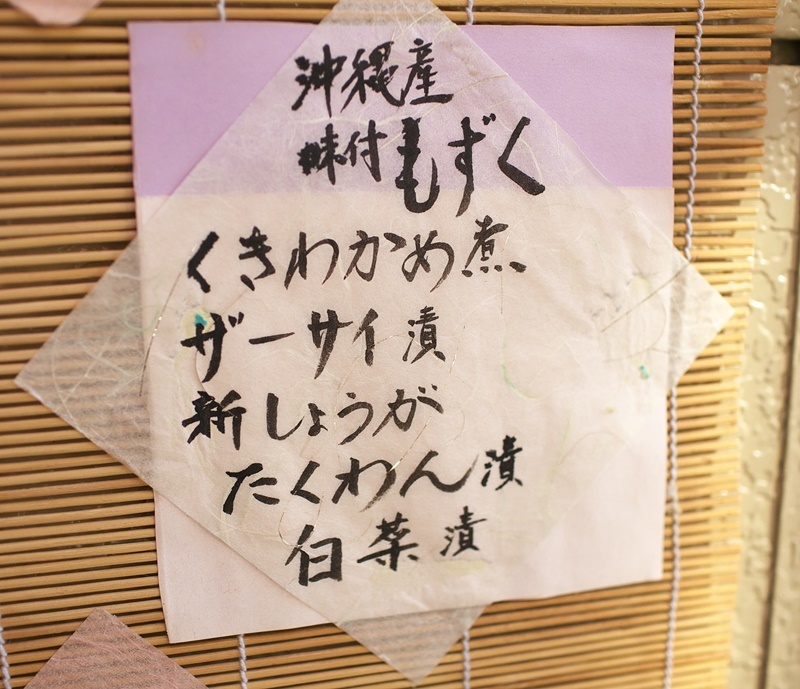 沖縄産
味付もずく
くきわかめ煮
ザーサイ漬
新しょうが
たくわん漬
白菜漬